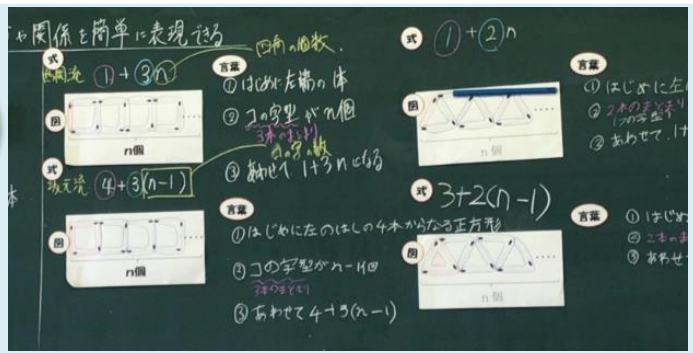 や関係を簡単に表現できる
式
1+3n
四角の個数
図
n個
言葉
①はじめに左端の1本
②コの字型がn個
3本のまとまり
コの字の数
③あわせて1+3nになる
式
4+3(n-1)
図
n個
言葉
①はじめに左のはしの4本からなる正方形
②コの字型がn-1個
3本のまとまり
③あわせて4+3(n-1)
式
1+2n
図
n個
言葉
①はじめに左
②2本のまとまり
③あわせて、1+
式
3+2(n-1)
図
n個
言葉
①はじめ
②2本のま
③あわせ
本